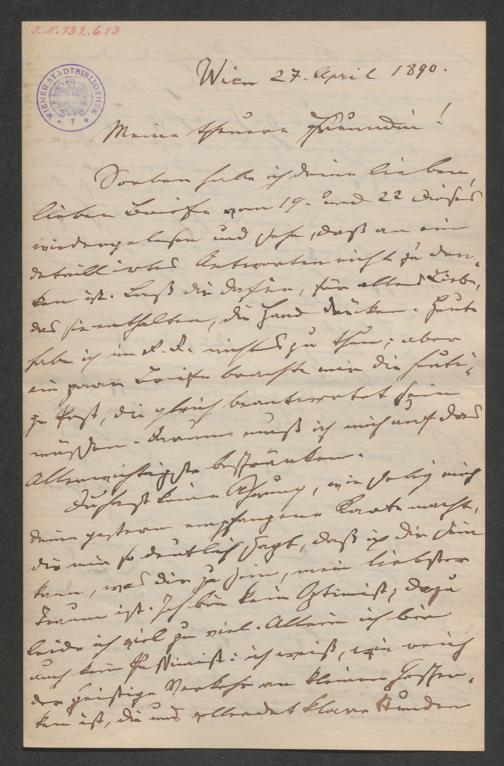 J.N. 132.613
WIENER STADTBIBLIOTHEK
Wien 27. April 1890.
Meine theuere Freundin!
Soeben habe ich deine lieben,
lieben Briefe vom 19. und 22 dieses
wiedergelesen und sehe, daß an ein
detaillirtes Antworten nicht zu den-
ken ist. Laß dir dafür, für alles Liebe,
das sie enthalten, die Hand drücken. Heute
habe ich im nichts zu thun; aber
ein paar Briefe brachte mir die heuti-
ge Post, die gleich beantwortet sein
müssen. Darum muß ich mich auf das
Allerwichtigste beschränken.
Du hast keine Ahnung, wie selig mich
deine gestern empfangene Karte macht,
die mir so deutlich sagt, daß ich dir sein
kann, was dir zu sein, mein liebster
Traum ist. Ich bin kein Optimist; dazu
leide ich viel zu viel. Allein ich bin
auch kein Pessimist: ich weiß, wie reich
der geistige Verkehr an kleinen
ken ist, die uns vollendet klare Stunden